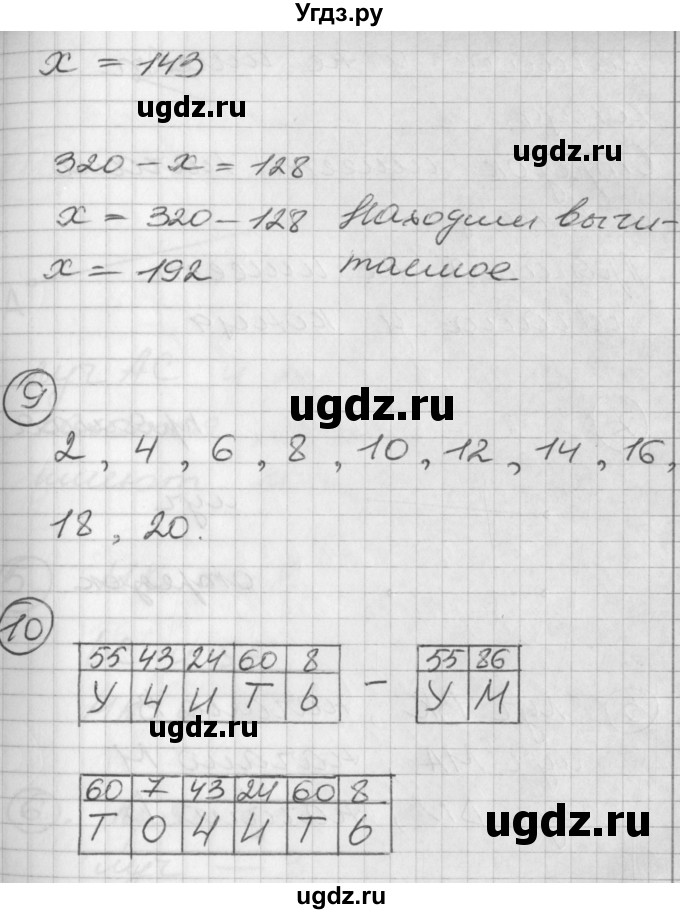 Угдз.ру
x = 143
ugdz.ru
ugdz.ru
320 - x = 128
x = 320 - 128 Находим вычи-
x = 192 таемое
9
ugdz.ru
2, 4, 6, 8, 10, 12, 14, 16,
18, 20.
10
55 43 24 60 8 55 86
У Ч И Т Ь - У М
ugdz.ru
60 7 43 24 60 8
Т О Ч И Т Ь
ugdz.ru
ugdz.ru